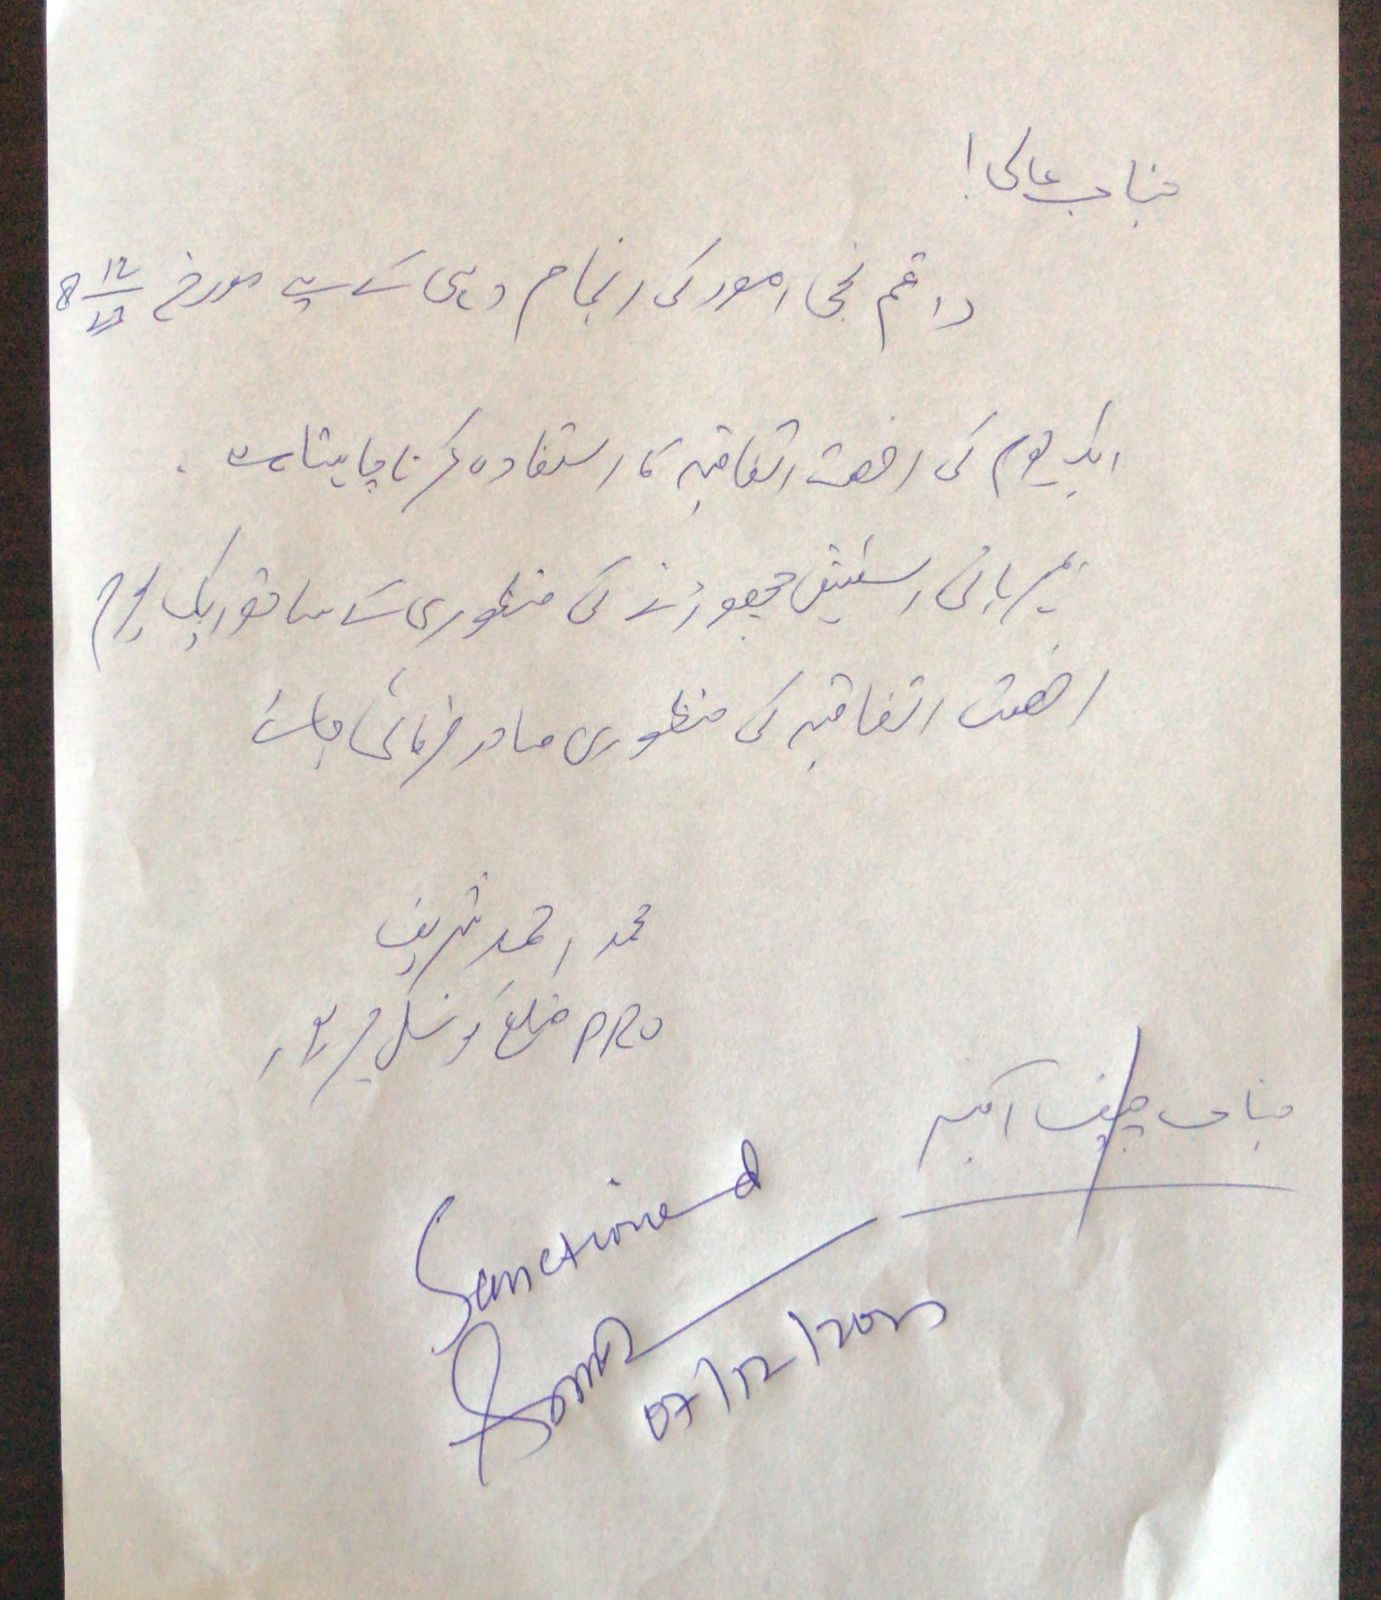 جناب عالی !
راقم نجی امور کی انجام دہی کے لیے مورخہ 8/12
ایک یوم کی رخصت اتفاقیہ کا استفادہ کرنا چاہتا ہے ۔
بمہربانی اسٹیشن چھوڑنے کی منظوری کے ساتھ ایک یوم
رخصت اتفاقیہ کی منظوری صادر فرمائی جائے
محمد احمد شریف
PRO ضلع کونسل
جناب چیف آفیسر
Sanctioned
07/12/202